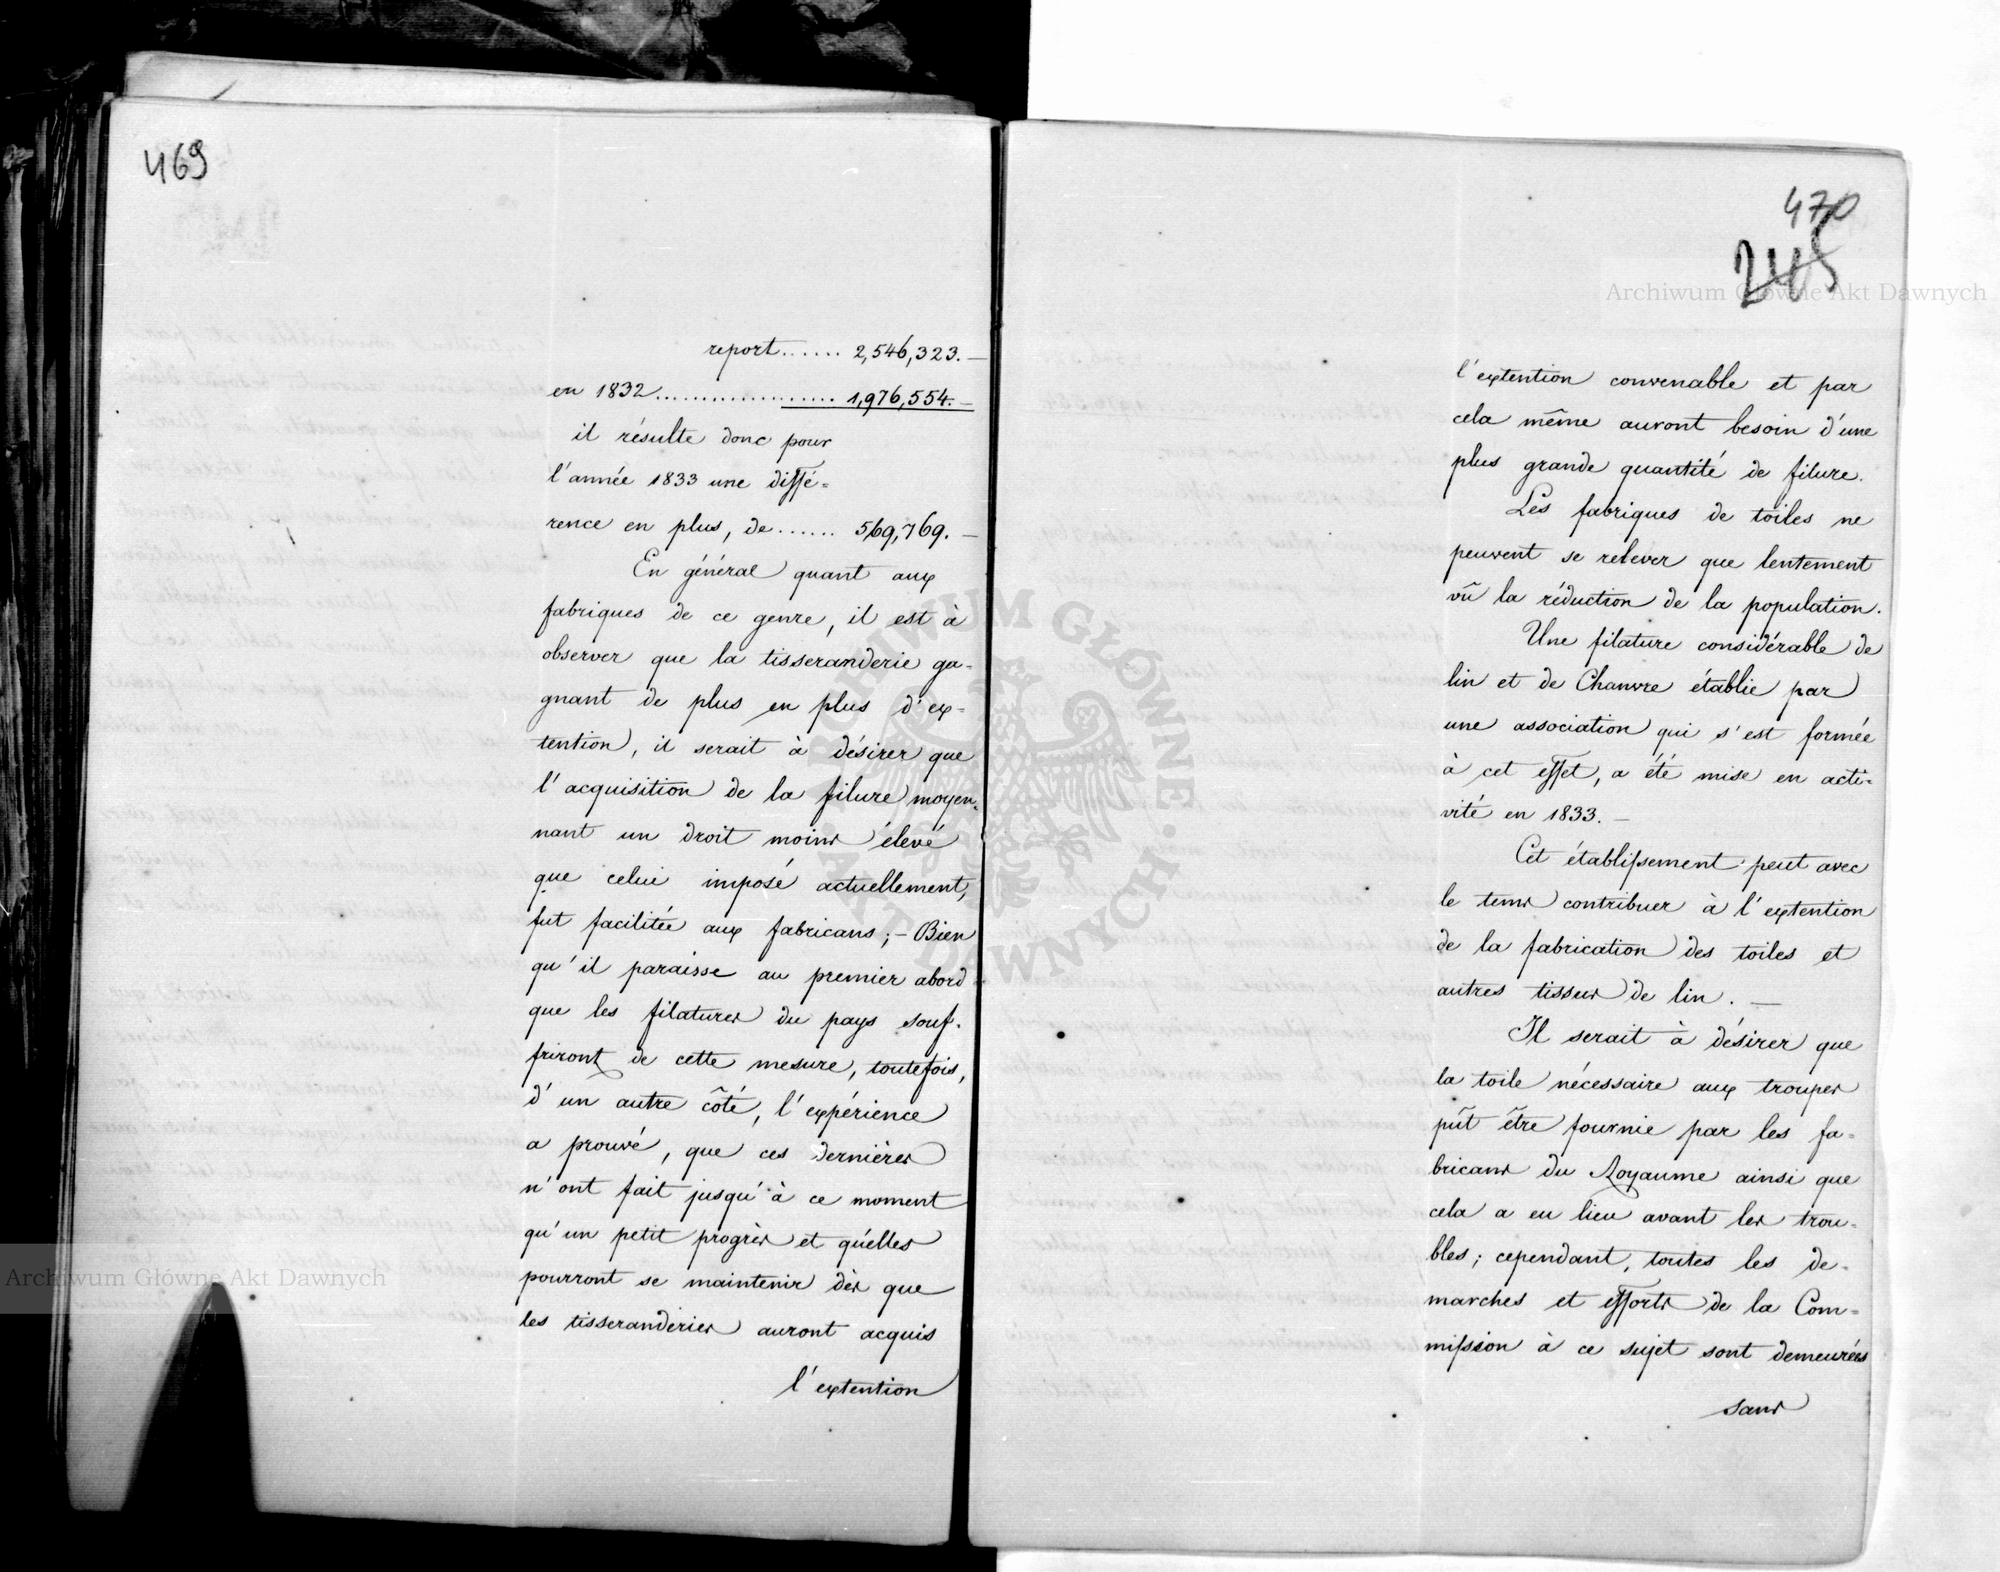 469
report...... 2,546,323.—
en 1832................... 1,976,554.—
il résulte donc pour
l'année 1833 une diffé=
rence en plus, de...... 569,769.—
En général quant aux
fabriques de ce genre, il est à
observer que la tisseranderie ga-
gnant de plus en plus d'ex-
tention, il serait à désirer que
l'acquisition de la filure moyen-
nant un droit moins élevé
que celui imposé actuellement,
fut facilitée aux fabricans; – Bien
qu'il paraisse au premier abord
que les filatures du pays souf-
friront de cette mesure, toutefois,
d'un autre côté, l'expérience
a prouvé, que ces dernières
n'ont fait jusqu'à ce moment
qu'un petit progrès et qu'elles
pourront se maintenir dès que
les tisseranderies auront acquis
l'extention
470
245
l'extention convenable et par
cela même auront besoin d'une
plus grande quantité de filure.
Les fabriques de toiles ne
peuvent se relever que lentement
vû la réduction de la population.
Une filature considérable de
lin et de Chanvre établie par
une association qui s'est formée
à cet effet, a été mise en acti-
vité en 1833. —
Cet établissement peut avec
le tems contribuer à l'extention
de la fabrication des toiles et
autres tissus de lin. —
Il serait à désirer que
la toile nécessaire aux troupes
pût être fournie par les fa-
bricans du Royaume ainsi que
cela a eu lieu avant les trou-
bles; cependant, toutes les de-
marches et efforts de la Com=
mission à ce sujet sont demeurées
sans
Archiwum Główne Akt Dawnych
Archiwum Główne Akt Dawnych
ARCHIWUM GŁÓWNE · AKT DAWNYCH ·